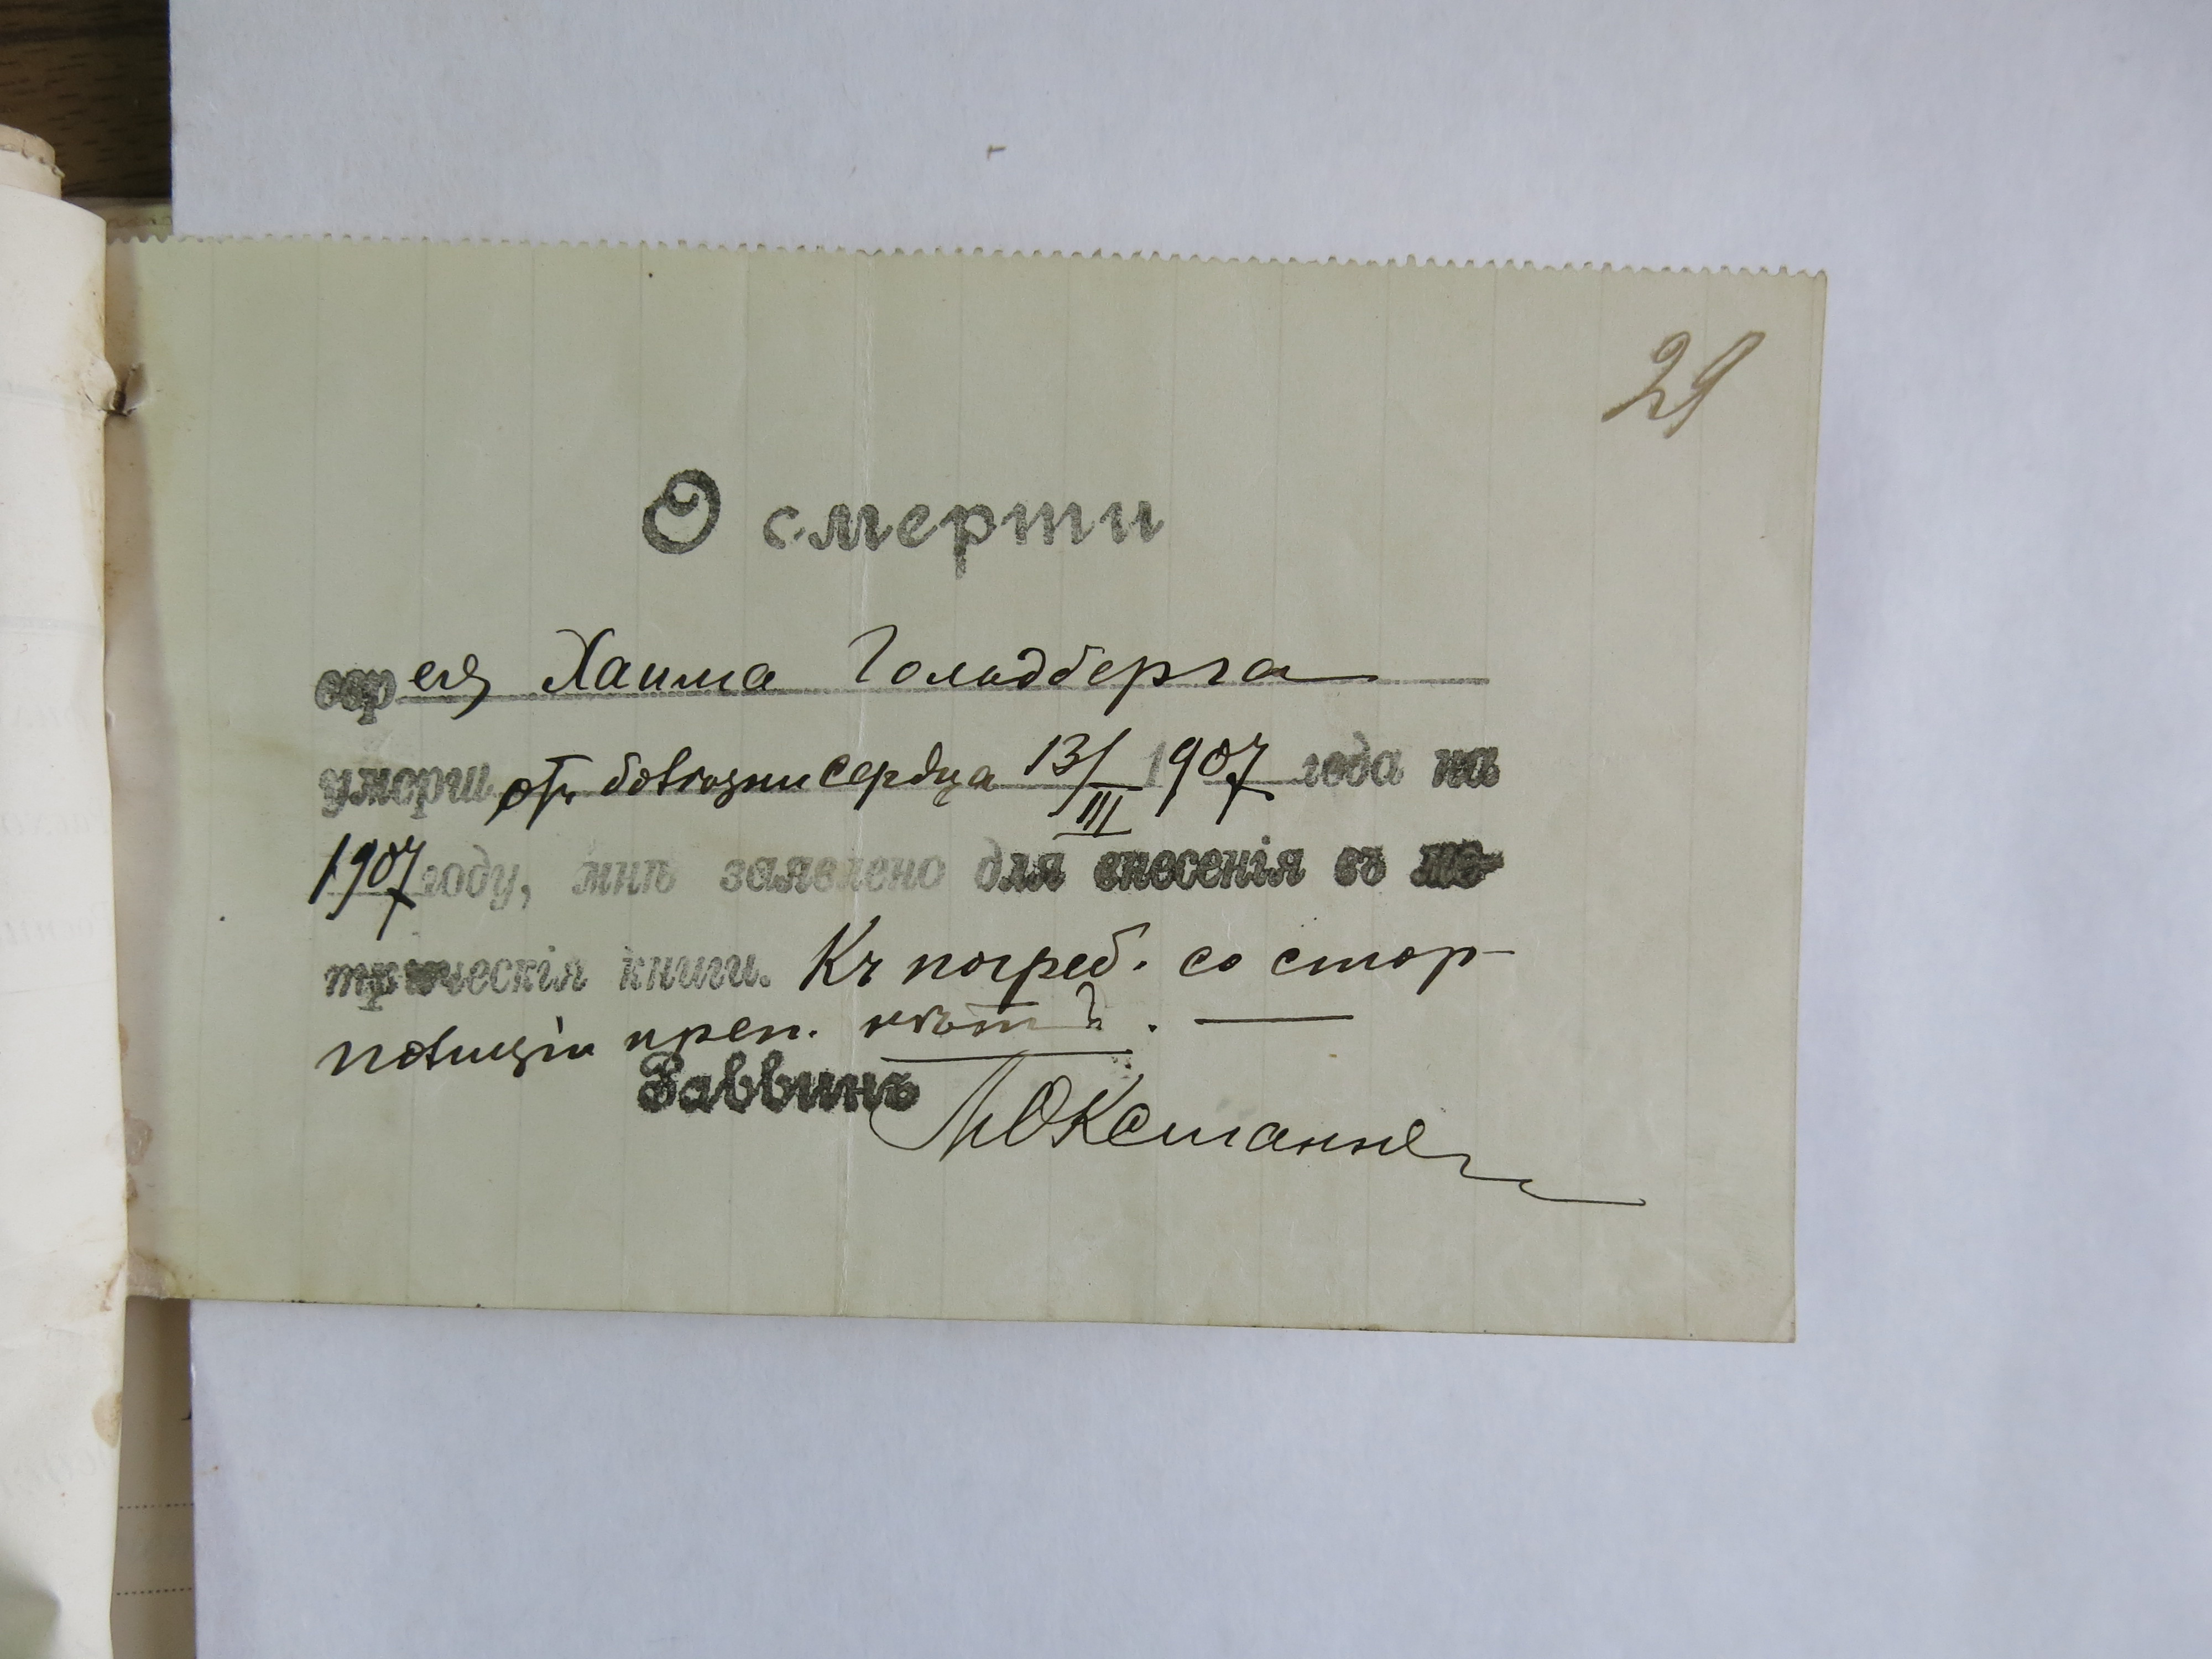 29
О смерти
еврея Хаима Гольдберга
умерш. отъ болѣзни сердца 13/III 1907 года на
1907 году, мнѣ заявлено для внесенія въ ме-
трическія книги. Къ погреб. со стор-
полиціи преп. нѣтъ.
Раввинъ